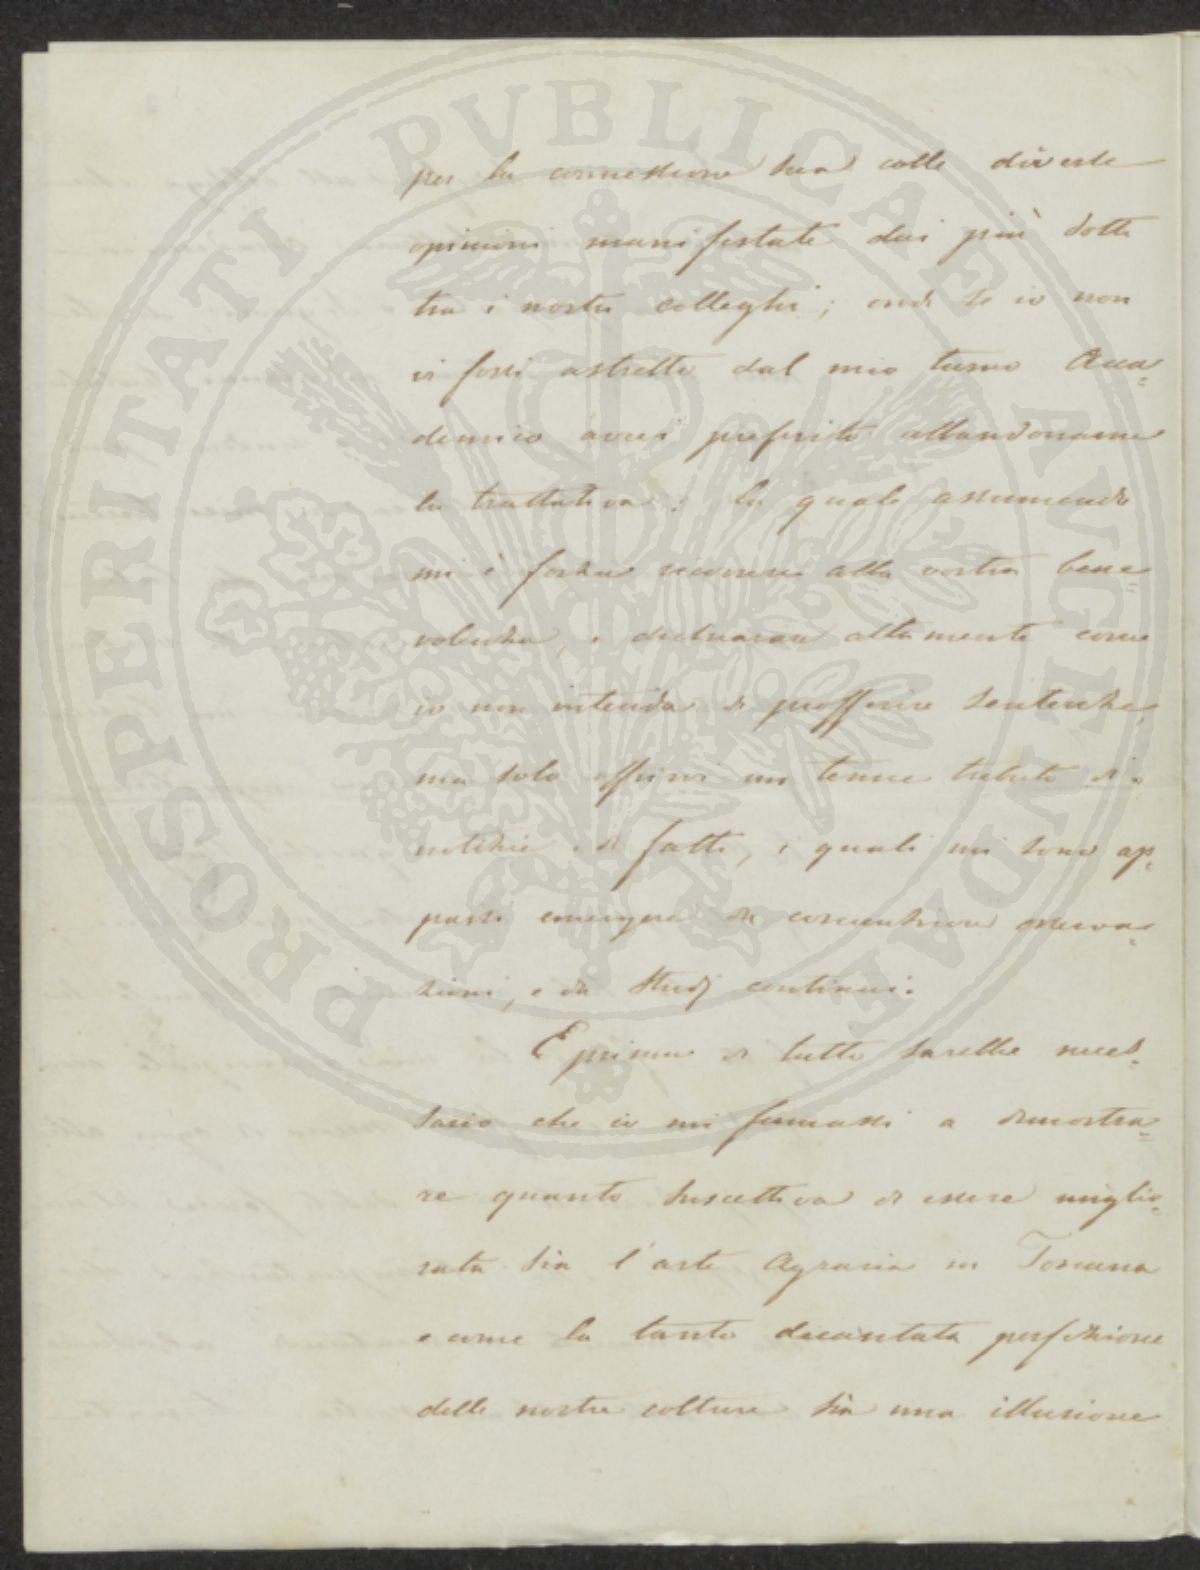 PROSPERITATI PVBLICAE AVGENDAE
per la connessione sua colle diverse
opinioni manifestate dai più dotti
tra i nostri colleghi; onde se io non
vi fossi astretto dal mio turno Acca=
demico avrei preferito abbandonarne
la trattativa: la quale assumendo
mi è forza ricorrere alla vostra bene=
volenza, e dichiarare altamente come
io non intenda di profferire sentenze,
ma solo offrirvi un tenue tributo di
notizie e di fatti, i quali mi sono ap=
parsi emergere da coscienziose osserva=
zioni, e da studj continui.
E prima di tutto sarebbe neces=
sario che io mi fermassi a dimostra=
re quanto suscettiva di essere miglio=
rata sia l'arte Agraria in Toscana
e come la tanto decantata perfezione
delle nostre colture sia una illusione